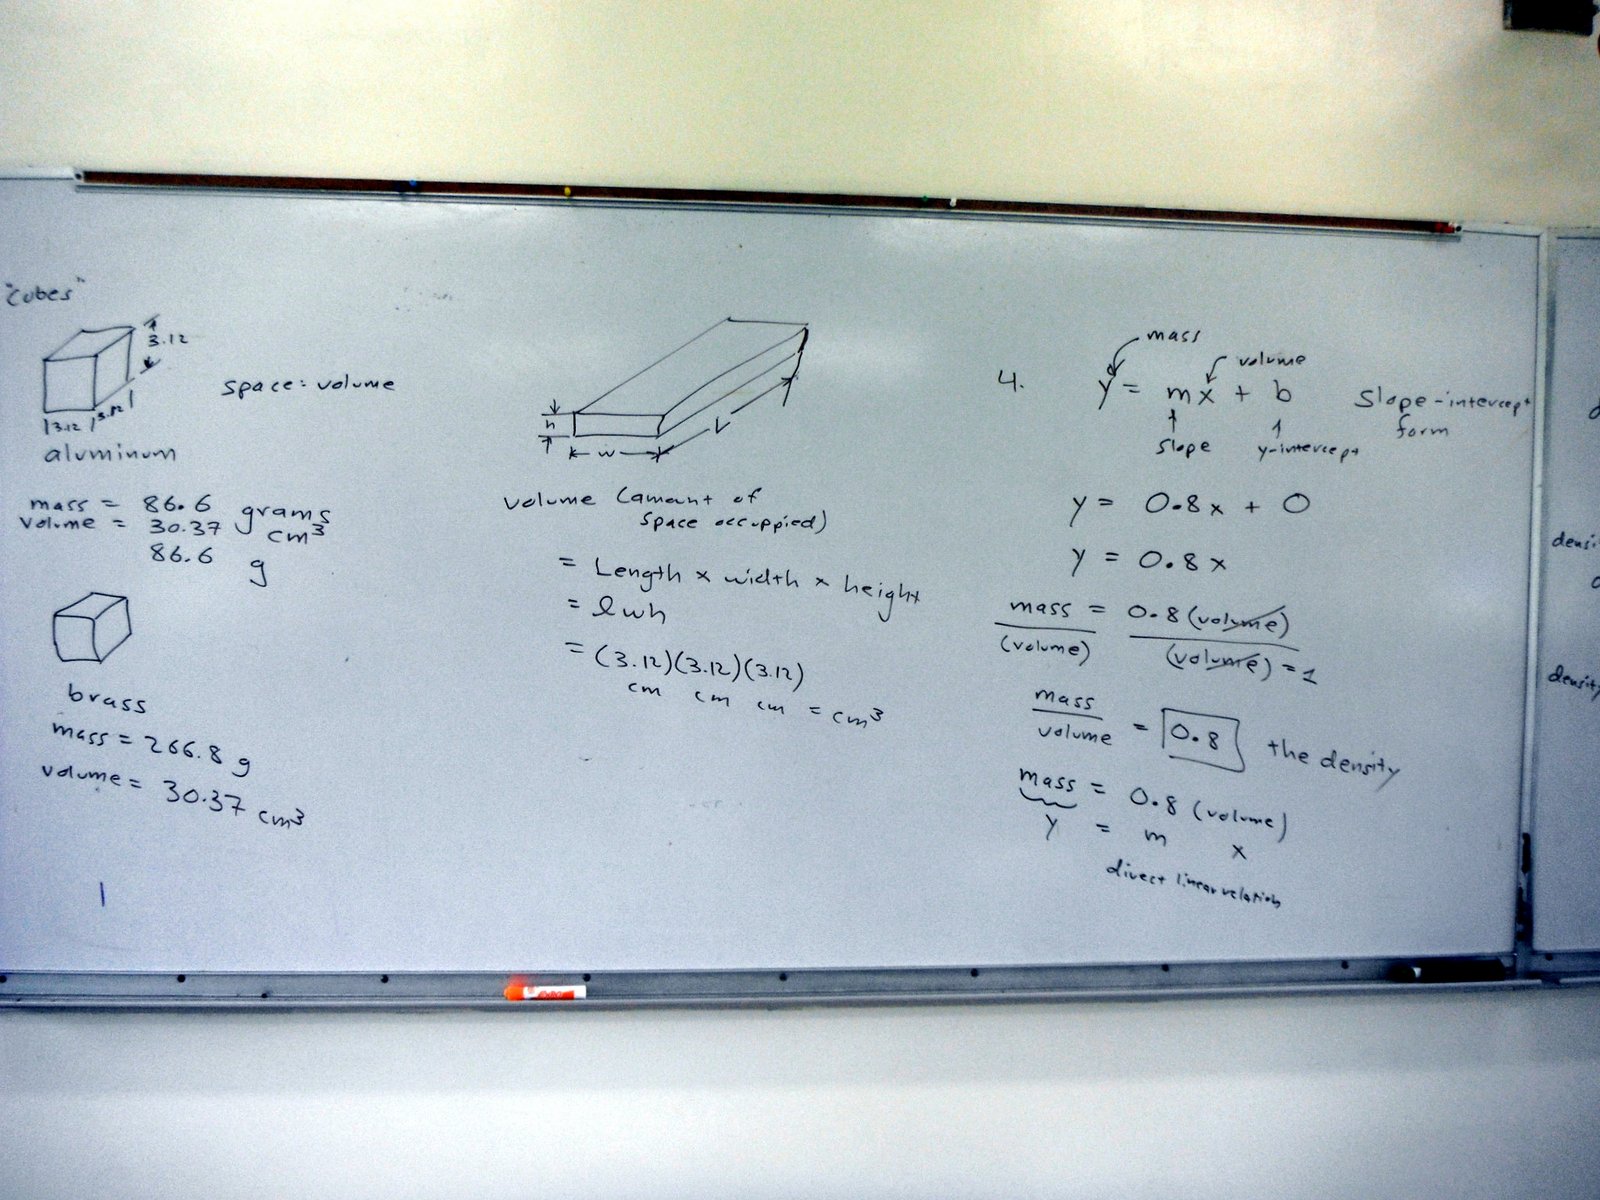 "cubes"
3.12
3.12
3.12
aluminum
space: volume
mass = 86.6 grams
volume = 30.37 cm³
86.6 g
brass
mass = 266.8 g
volume = 30.37 cm³
h
w
L
volume (amount of
space occuppied)
= Length x width x height
= lwh
= (3.12)(3.12)(3.12)
cm cm cm = cm³
4.
mass
volume
y = mx + b
Slope-intercept
form
slope
y-intercept
y = 0.8x + 0
y = 0.8x
mass = 0.8 (volume)
(volume) (volume) = 1
mass
volume = 0.8 the density
mass = 0.8 (volume)
y = m x
direct linear relation
densi
density